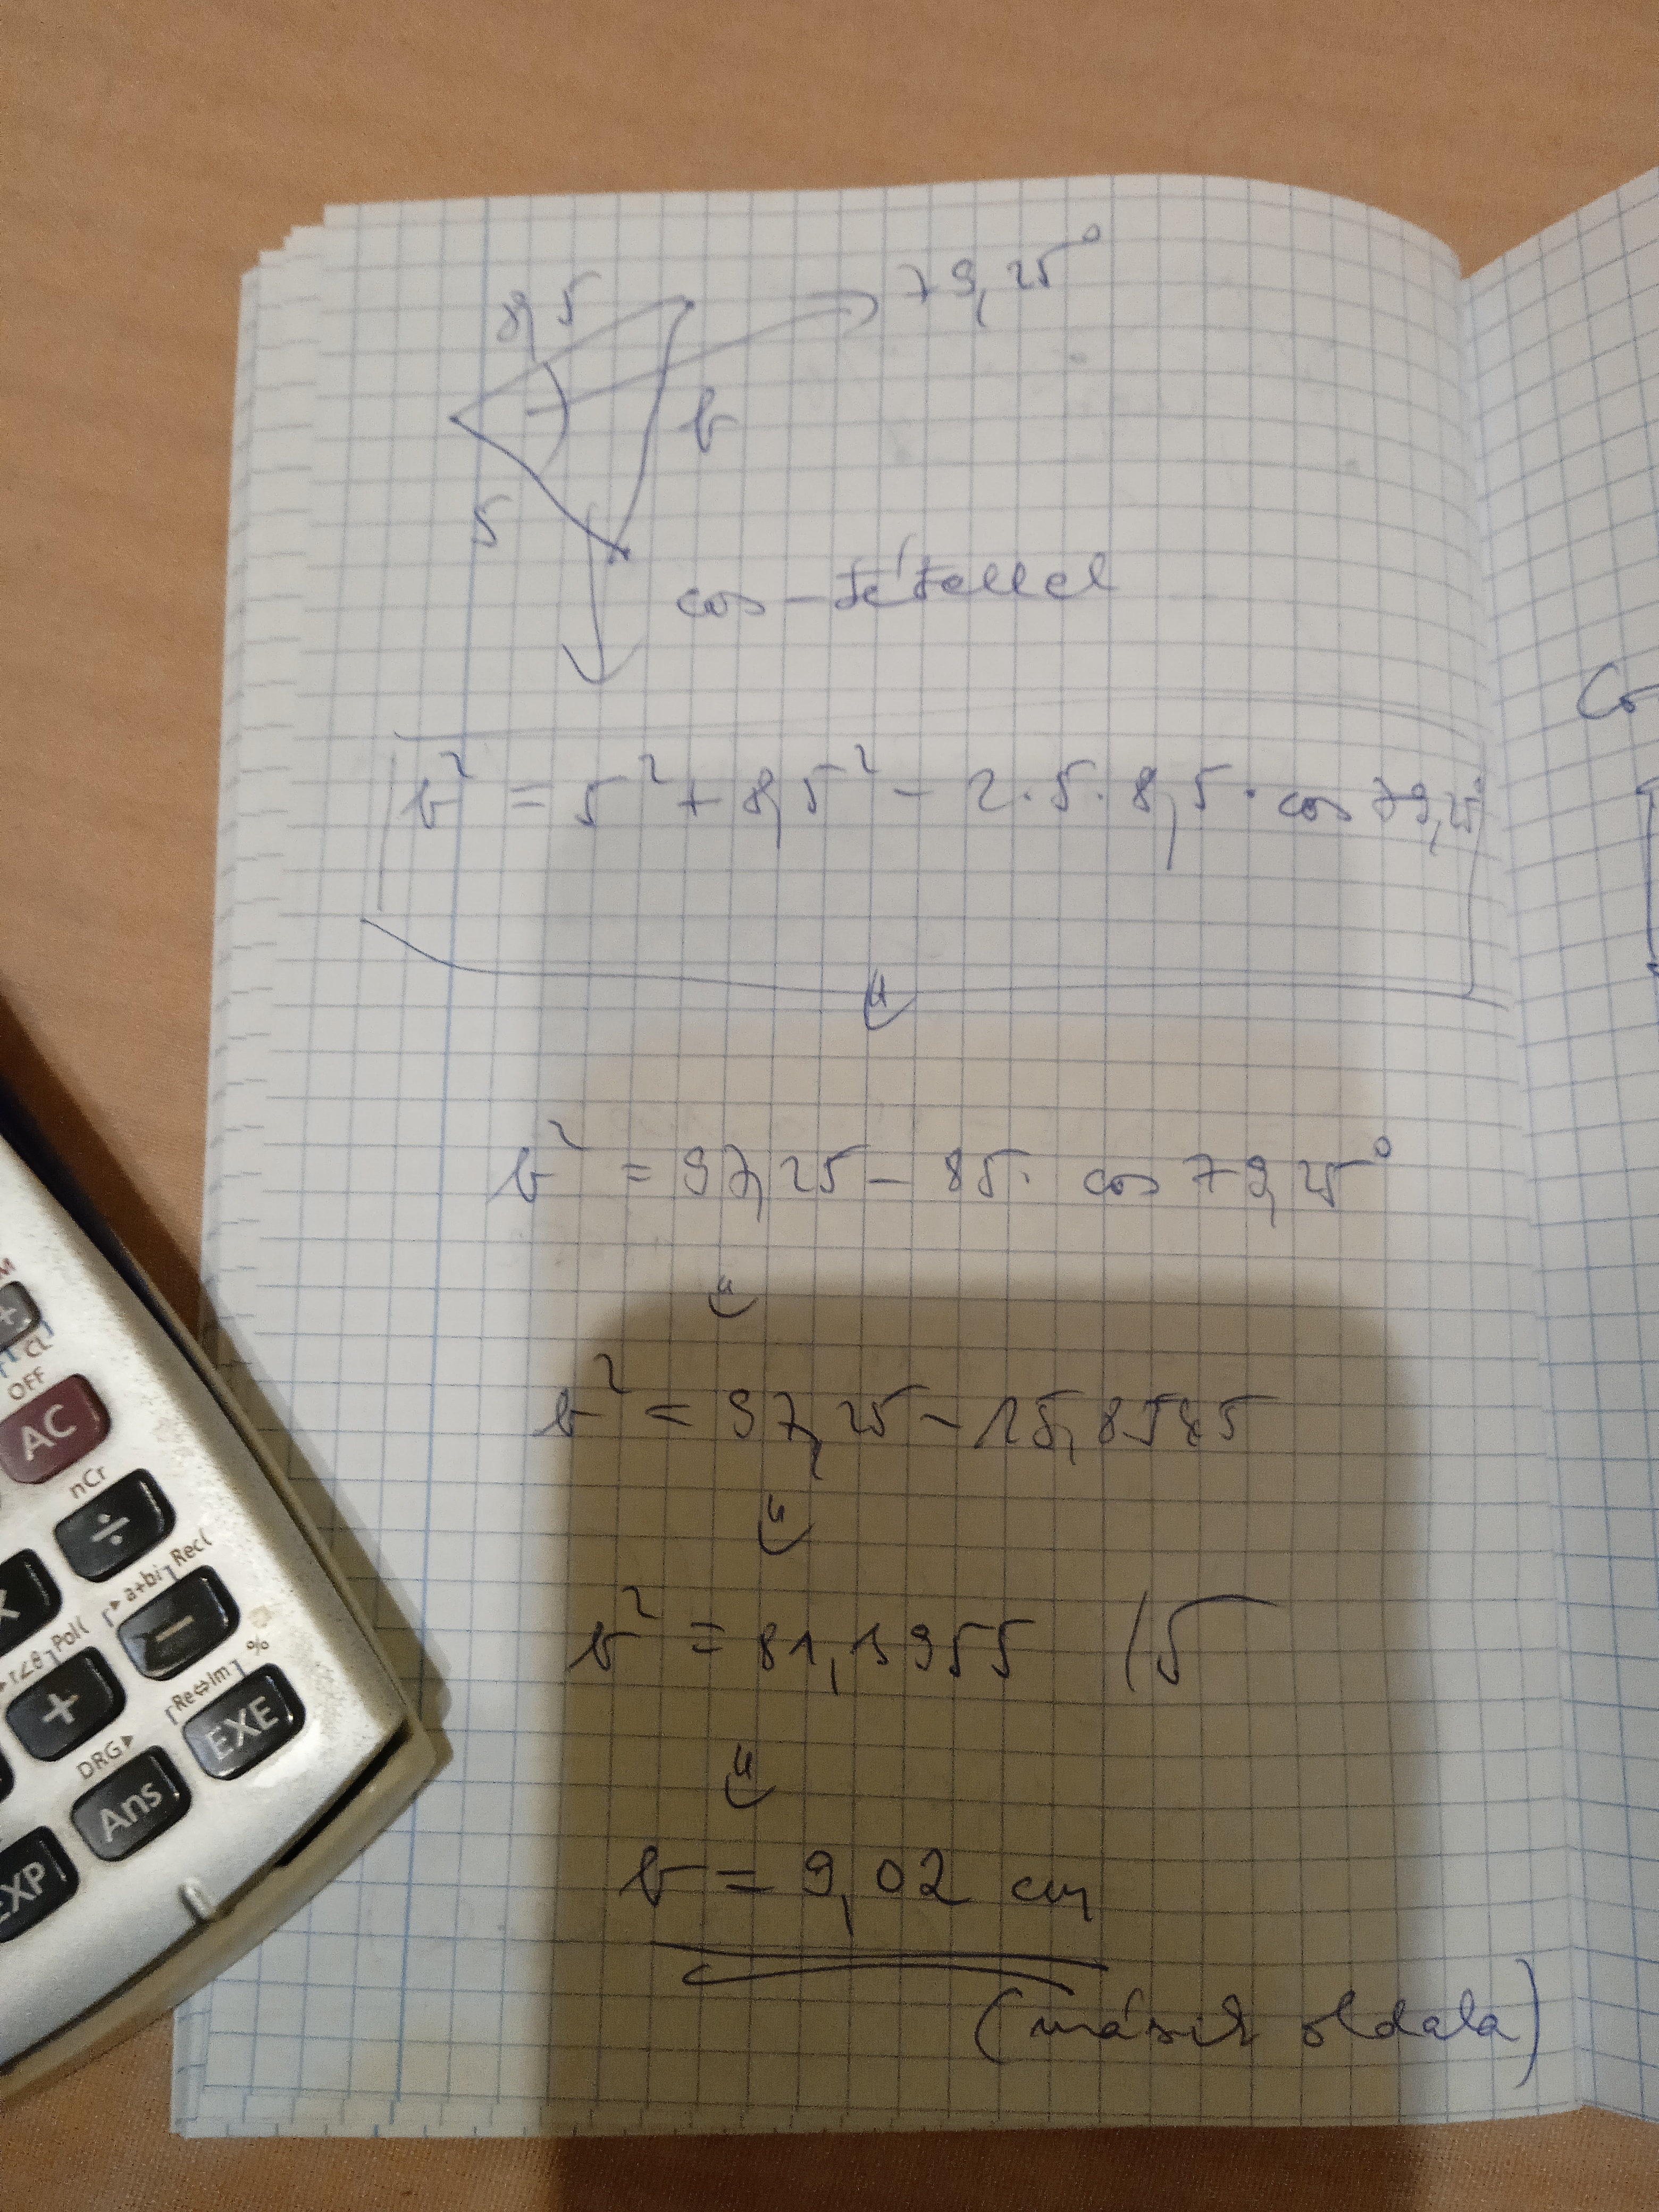 8,5
79,25°
b
5
cos-tétellel
b² = 5² + 8,5² - 2·5·8,5·cos 79,25°
b² = 97,25 - 85· cos 79,25°
b² = 97,25 - 15,8545
b² = 81,3955 /√
b = 9,02 cm
(másik oldala)
Co
CL
OFF
AC
nCr
÷
Rec(
a+bi
−
Pol(
r∠θ
+
%
Re⇔Im
EXE
DRG▸
Ans
EXP
M